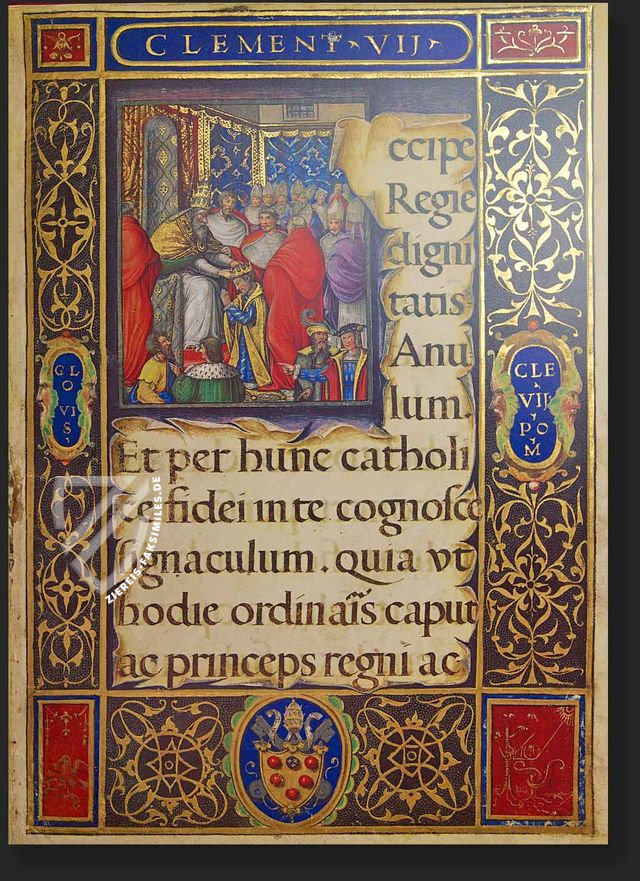 CLEMENT · VIJ ·
ccipe
Regie
digni
tatis
Anu
lum.
GLO
VIS
CLE
VII
PO
M
Et per hunc catholi
ce fidei in te cognosce
signaculum. quia vt
hodie ordinaĩs caput
ac princeps regni ac
ZIEREIS-FAKSIMILES.DE